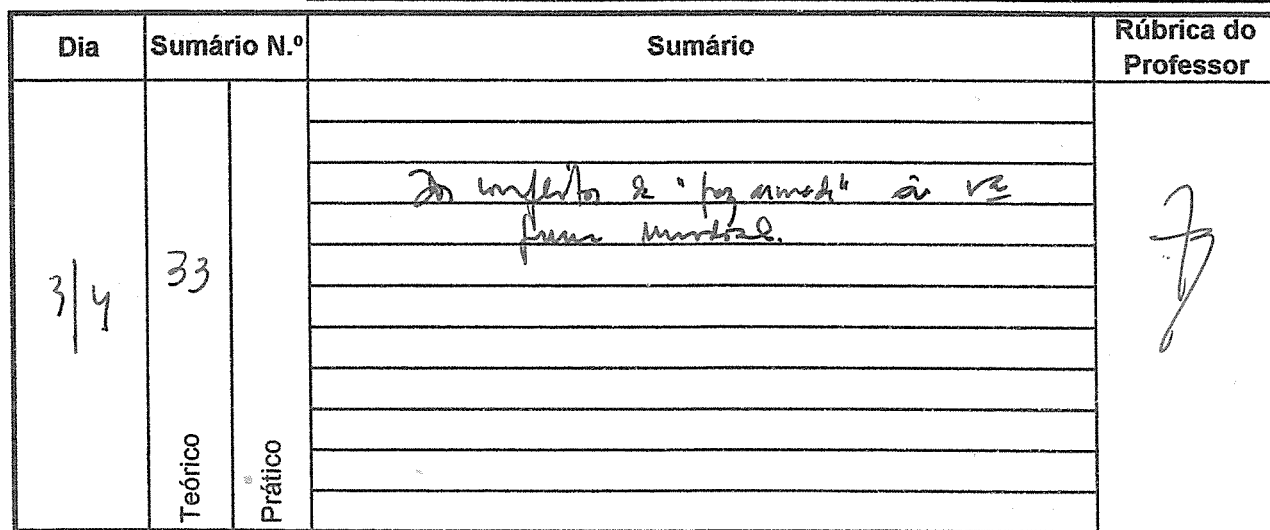 Dia
Sumário N.º
Sumário
Rúbrica do
Professor
3/4
33
Teórico
Prático
Dos conflitos da "paz armada" à 1ª
guerra mundial.